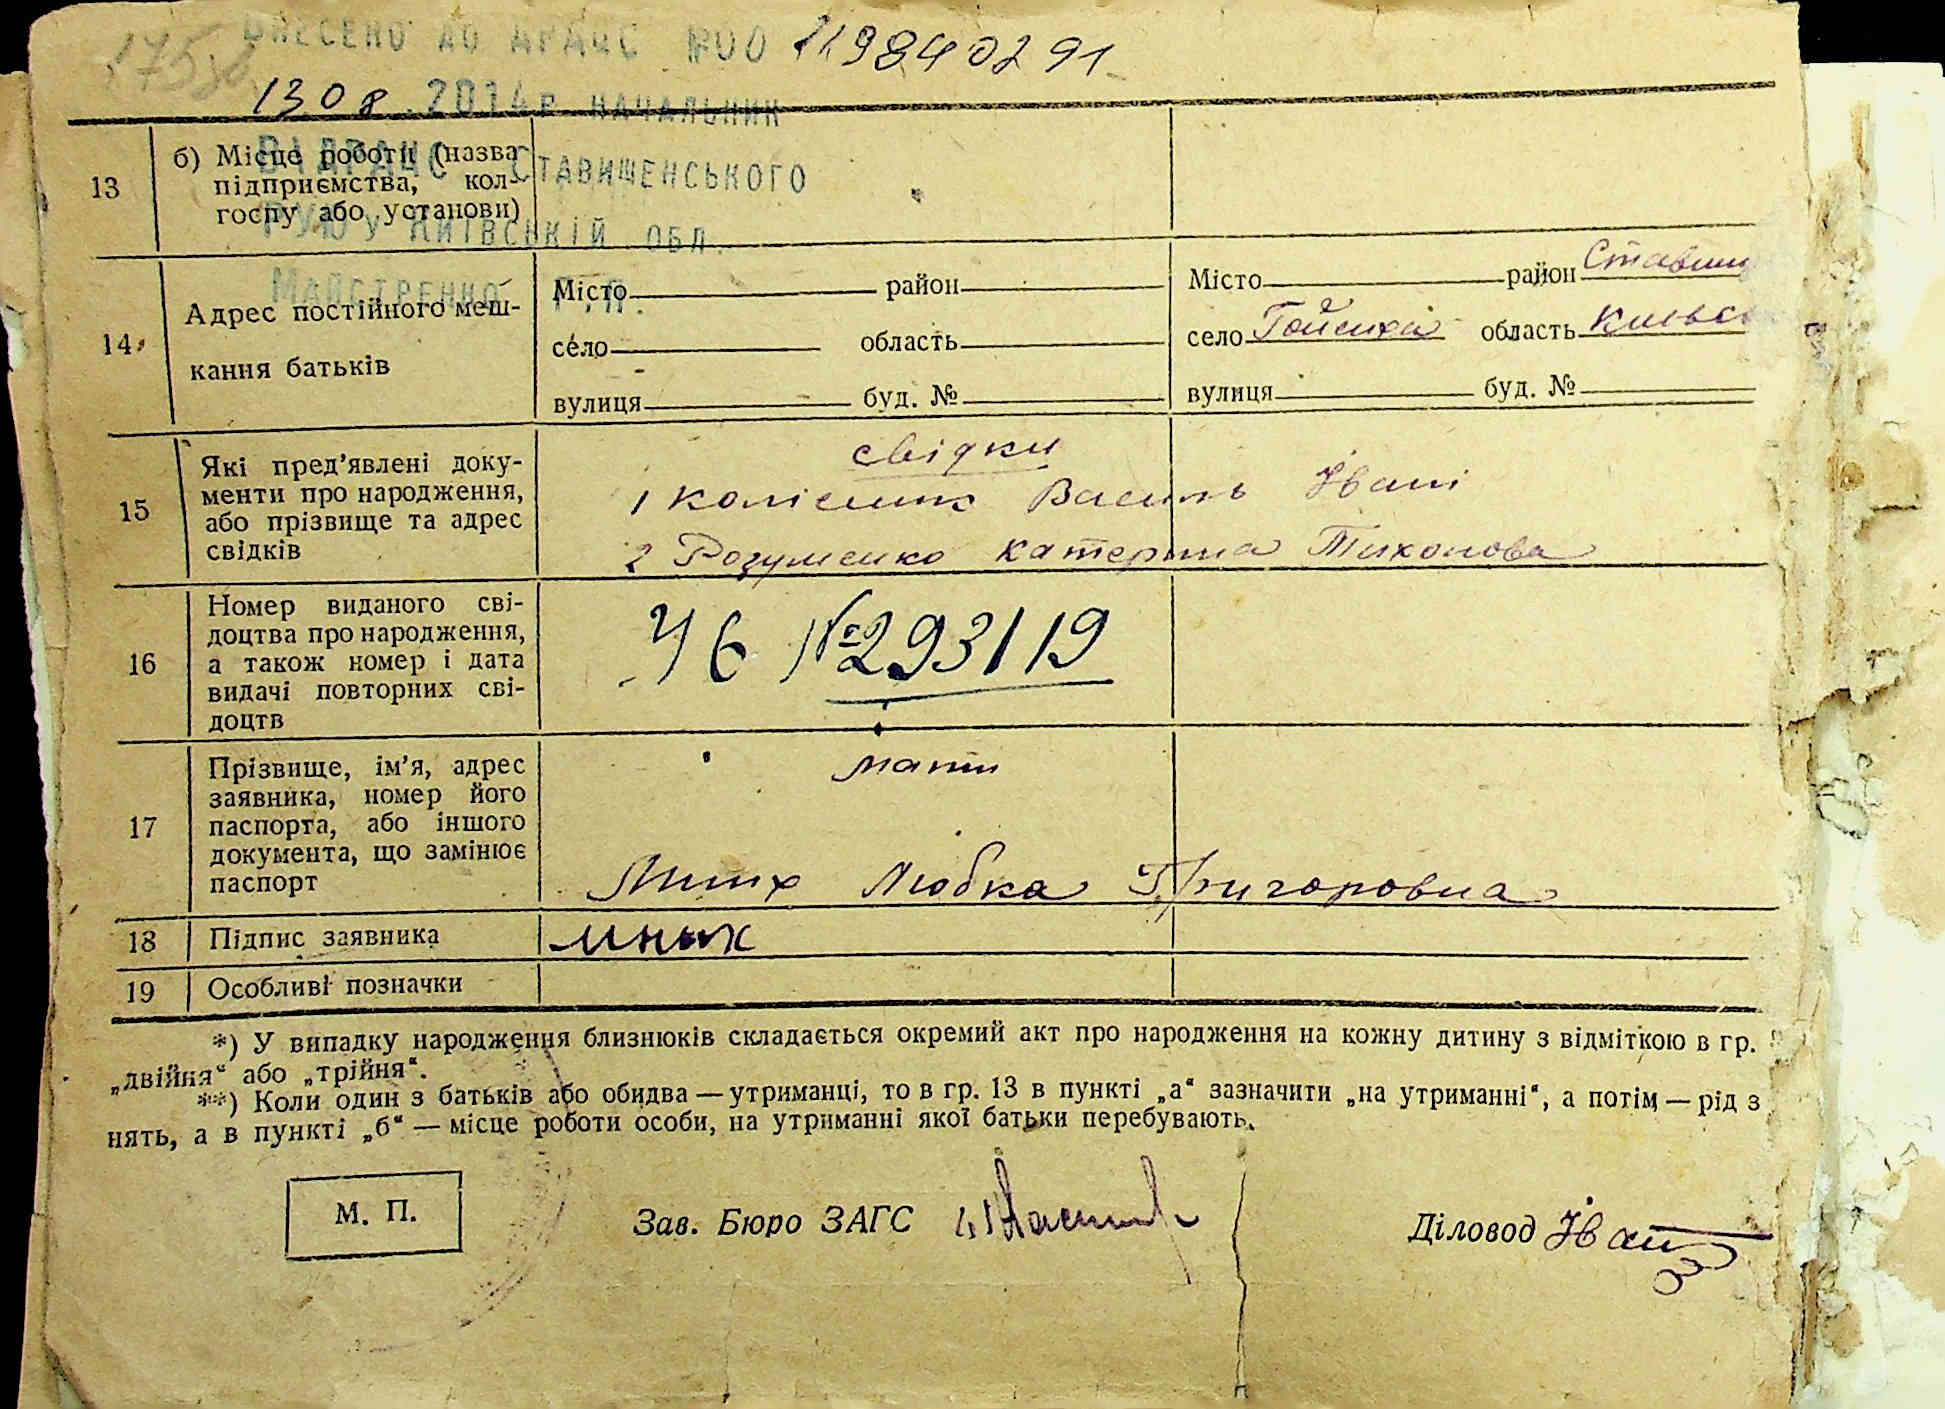 ВНЕСЕНО ДО ДРАЦС №00 119840291
1308.2014р НАЧАЛЬНИК
ВІДРАЦС СТАВИЩЕНСЬКОГО
РУЮ У КИЇВСЬКІЙ ОБЛ.
МАЙСТРЕНКО Г.П.
13 б) Місце роботи (назва
підприємства, кол-
госпу або установи)
14. Адрес постійного меш-
кання батьків
Місто район
село область
вулиця буд. №
Місто район Ставищ
село Гойсиха область Київсь
вулиця буд. №
15 Які пред’явлені доку-
менти про народження,
або прізвище та адрес
свідків
свідки
1 Колісник Василь Івані
2 Розуменко Катерина Тихонова
16 Номер виданого сві-
доцтва про народження,
а також номер і дата
видачі повторних сві-
доцтв
УБ №293119
17 Прізвище, ім’я, адрес
заявника, номер його
паспорта, або іншого
документа, що замінює
паспорт
мати
Любка Григоровна
18 Підпис заявника
19 Особливі позначки
*) У випадку народження близнюків складається окремий акт про народження на кожну дитину з відміткою в гр.
„двійня“ або „трійня“.
**) Коли один з батьків або обидва — утриманці, то в гр. 13 в пункті „а“ зазначити „на утриманні“, а потім — рід з
нять, а в пункті „б“ — місце роботи особи, на утриманні якої батьки перебувають.
М. П.
Зав. Бюро ЗАГС
Діловод